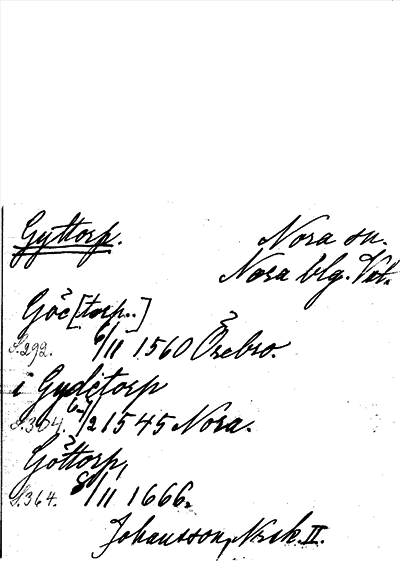 Gyttorp.
Nora sn.
Nora blg. Vst.
Göč[torp..]
S.292. 6/11 1560 Örebro.
i Gydčtorp
S.304. 6/2 1545 Nora.
Göttorp,
S.364. 8/11 1666.
Johansson, Nsk. II.